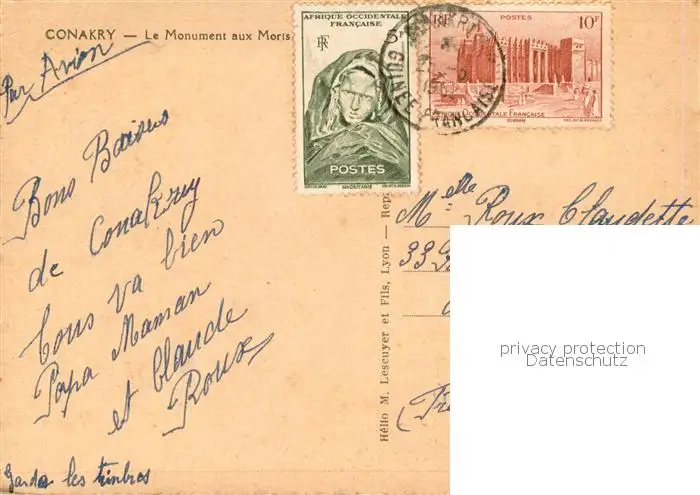 CONAKRY — Le Monument aux Morts
Par Avion
AFRIQUE OCCIDENTALE
FRANÇAISE
RF
POSTES
MAURITANIE
RF POSTES 10F
AFRIQUE OCCIDENTALE FRANÇAISE
SOUDAN
CONAKRY
GUINÉE FRANÇAISE
Bons Baisers
de Conakry
Tous va bien
Papa Maman
et Claude
Roux
Gardez les timbres
Hélio M. Lescuyer et Fils, Lyon — Rep
Melle Roux Claudette
33
privacy protection
Datenschutz